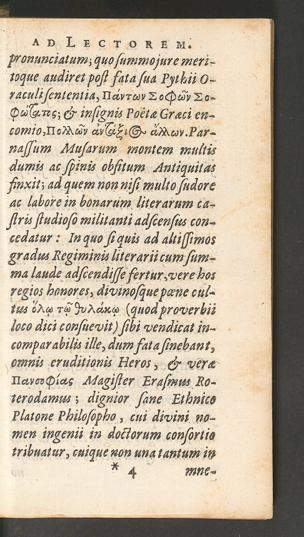 AD LECTOREM.
pronunciatum; quo summo jure meri-
toque audiret post fata sua Pythii O-
raculi sententia, Πάντων Σοφῶν Σο-
φώτατος; & insignis Poëtæ Græci en-
comio, Πολλῶν ἀντάξιος ἄλλων. Par-
nassum Musarum montem multis
dumis ac spinis obsitum Antiquitas
finxit; ad quem non nisi multo sudore
ac labore in bonarum literarum ca-
stris studioso militanti adscensus con-
cedatur: In quo si quis ad altissimos
gradus Regiminis literarii cum sum-
ma laude adscendisse fertur, vere hos
regios honores, divinosque pæne cul-
tus ὅλῳ τῷ θυλάκῳ (quod proverbii
loco dici consuevit) sibi vendicat in-
comparabilis ille, dum fata sinebant,
omnis eruditionis Heros, & veræ
Πανσοφίας Magister Erasmus Ro-
terodamus; dignior sane Ethnico
Platone Philosopho, cui divini no-
men ingenii in doctorum consortio
tribuatur, cuique non una tantum in
* 4 mne-